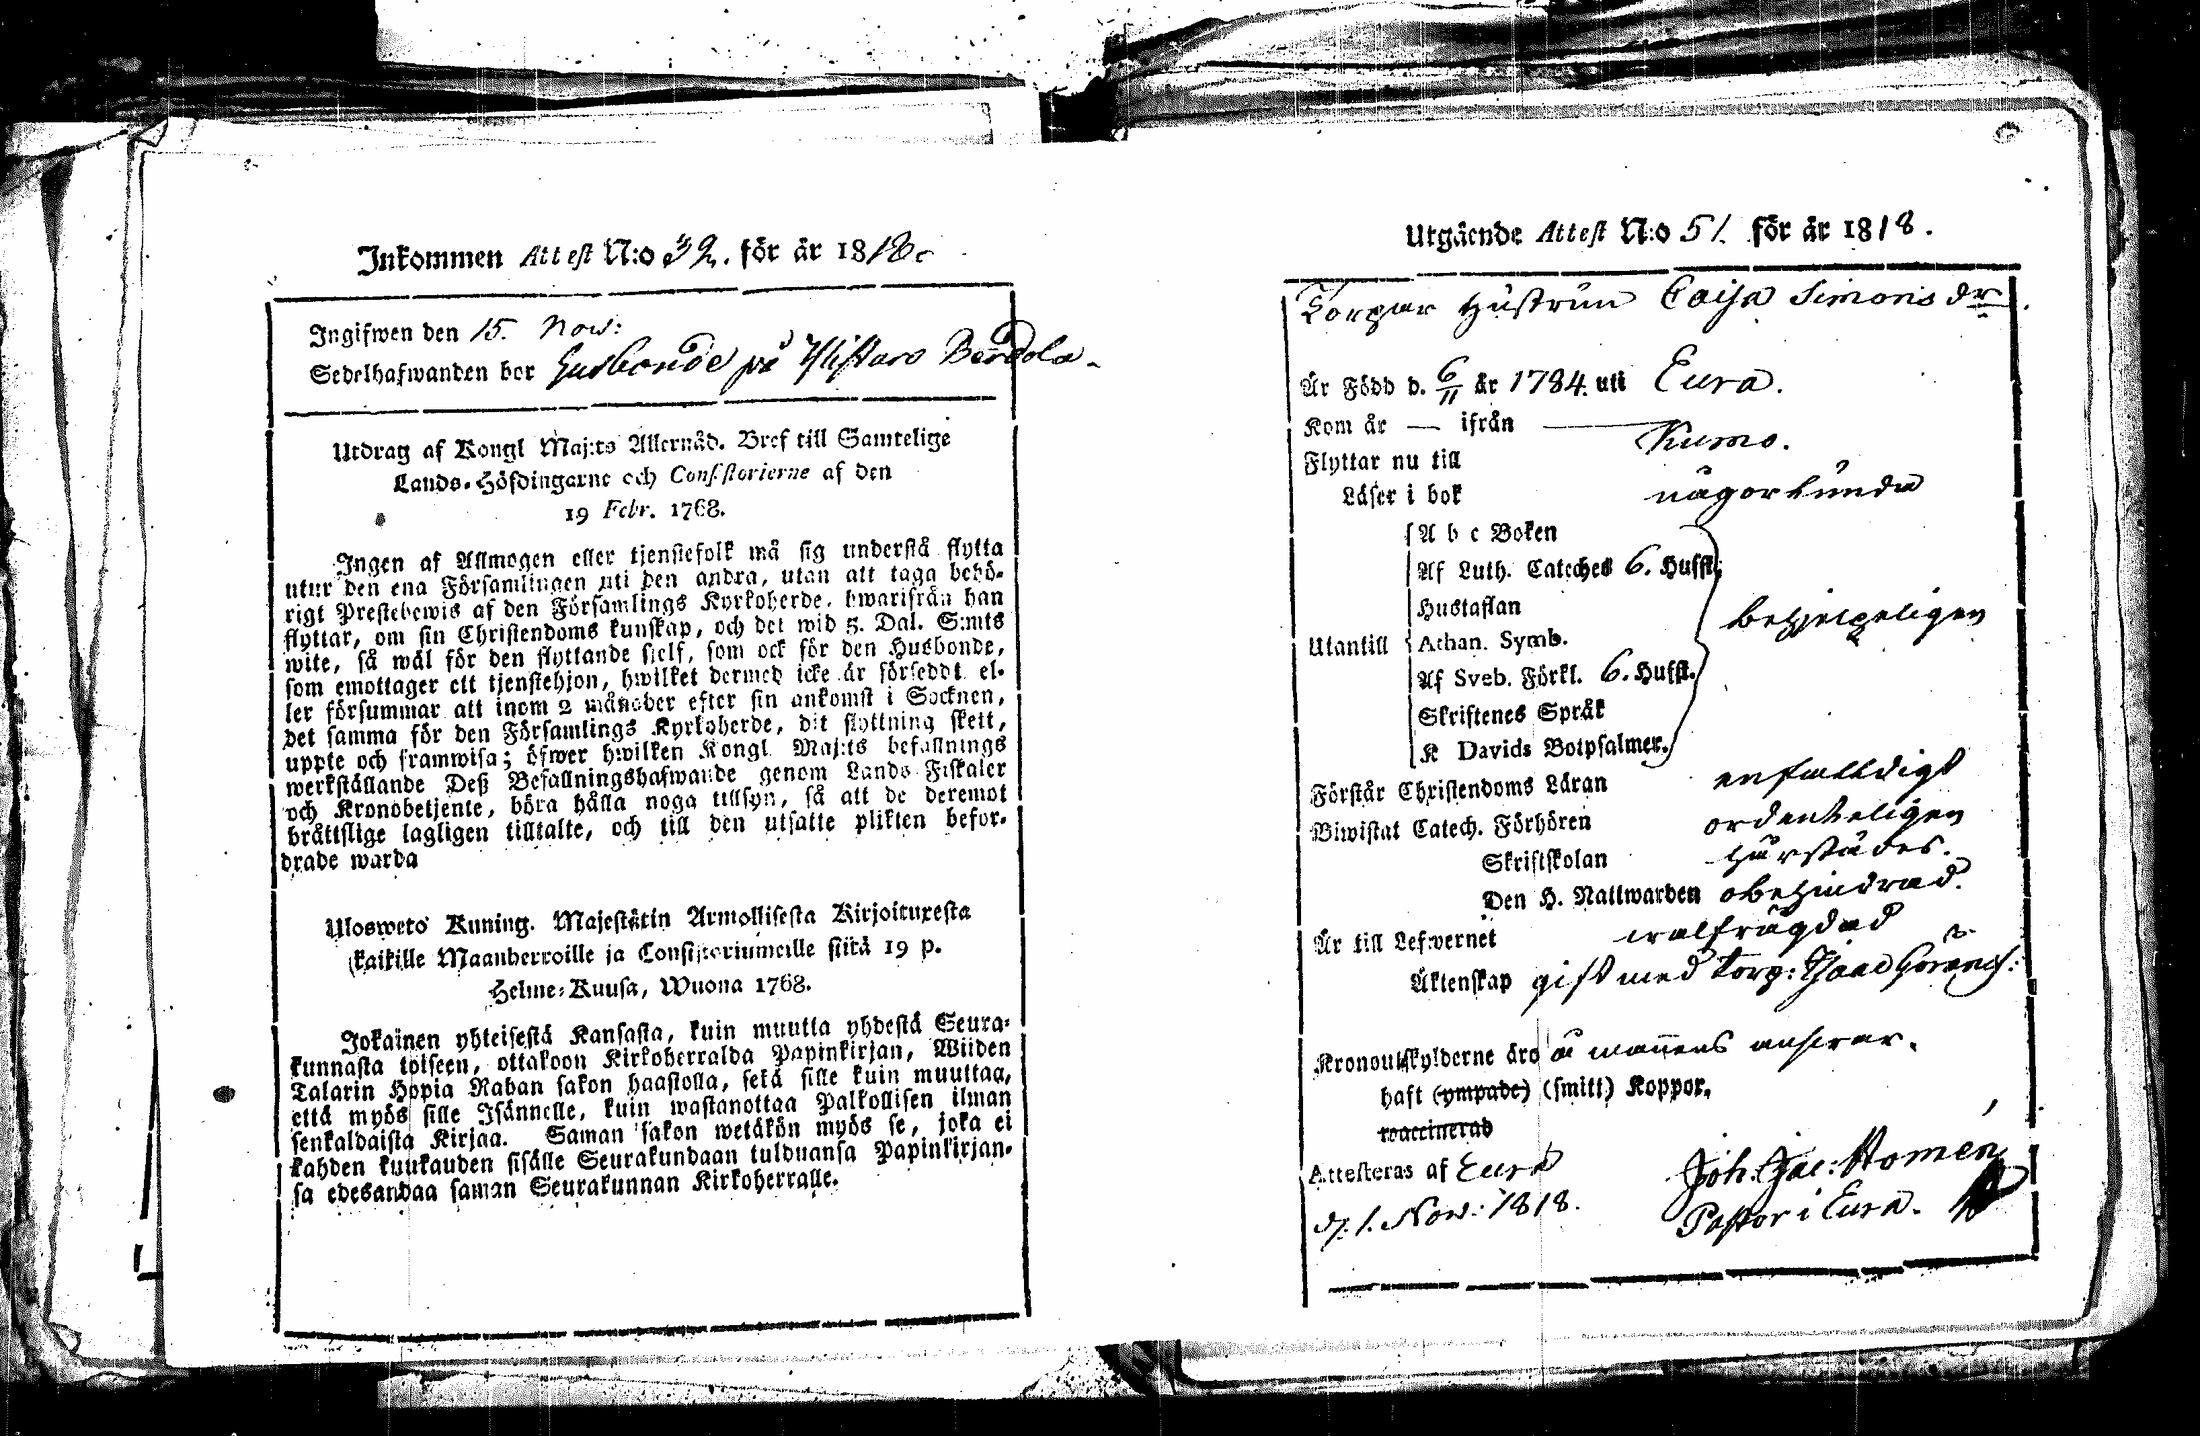 Inkommen Attest N:o 32. för år 1818.
Ingifwen den 15. Now:
Sedelhafwanden bor Husbonde på Yllistaro Bendola.
Utdrag af Kongl Maj:ts Allernåd. Bref till Samtelige
Lands-Höfdingarne och Consistorierne af den
19 Febr. 1768.
Ingen af Allmogen eller tjenstefolk må sig understå flytta
utur den ena Församlingen uti den andra, utan att taga behö-
rigt Prestebewis af den Församlings Kyrkoherde, hwarifrån han
flyttar, om sin Christendoms kunskap, och det wid 5. Dal. S:mts
wite, så wäl för den flyttande sielf, som ock för den Husbonde,
som emottager ett tjenstehjon, hwilket dermed icke är förseddt el-
ler försummar att inom 2 månader efter sin ankomst i Socknen,
det samma för den Församlings Kyrkoherde, dit flyttning skett,
uppte och framwisa; öfwer hwilken Kongl Maj:ts befallnings
werkställande Deß Befallningshafwande genom Lands Fiskaler
och Kronobetjente, böra hålla noga tillsyn, så att de deremot
bråttslige lagligen tilltalte, och till den utsatte plikten befor-
drade warda
Ulosweto Kuning. Majestätin Armollisesta Kirjoituxesta
kaikille Maanherroille ja Consistoriumeille siitä 19 p.
Helme-Kuusa, Wuona 1768.
Jokainen yhteisestä Kansasta, kuin muutta yhdestä Seura-
kunnasta toiseen, ottakoon Kirkoherralda Papinkirjan, Wiiden
Talarin Hopia Rahan sakon haastolla, sekä sille kuin muuttaa,
että myös sille Isännelle, kuin wastanottaa Palkollisen ilman
senkaldaista Kirjaa. Saman sakon wetäkön myös se, joka ei
kahden kuukauden sisälle Seurakundaan tulduansa Papinkirjan-
sa edesandaa saman Seurakunnan Kirkoherralle.
Utgående Attest N:o 51. för år 1818.
Torpar Hustrun Caisa Simons dr.
Är Född d. 6/11 år 1784. uti Eura.
Kom år — ifrån —
Flyttar nu till Kumo.
Läser i bok någorlunda
A b c Boken
Af Luth. Cateches 6. Hufst.
Hustaflan
Utantill Athan. Symb. behjelpeligen
Af Sveb. Förkl. 6. Hufst.
Skriftenes Språk
K Davids Botpsalmer.
Förstår Christendoms Läran enfalldigt
Biwistat Catech. Förhören ordenteligen
Skriftskolan härstädes.
Den H. Nattwarden obehindrad.
Är till Lefwernet wälfrägdad
Äktenskap gift med Torp: Isaac Görans:
Kronoutskylderne äro å mannens answar.
haft (ympade) (smitt) Koppor,
waccinerad
Attesteras af Eura
d. 1. Now: 1818.
Joh. Jac: Homén
Pastor i Eura.